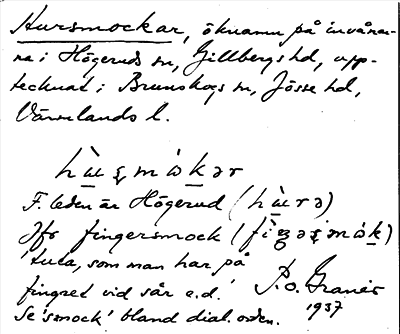 Hursmockar, öknamn på invånar-
na i Högeruds sn, Gillbergs hd, upp-
tecknat i Brunskogs sn, Jösse hd,
Värmlands l.
F. leden är Högerud
Jfr fingersmock
'tuta, som man har på
fingret vid sår e.d.' P.O. Granér
1937
Se 'smock' bland dial.orden.